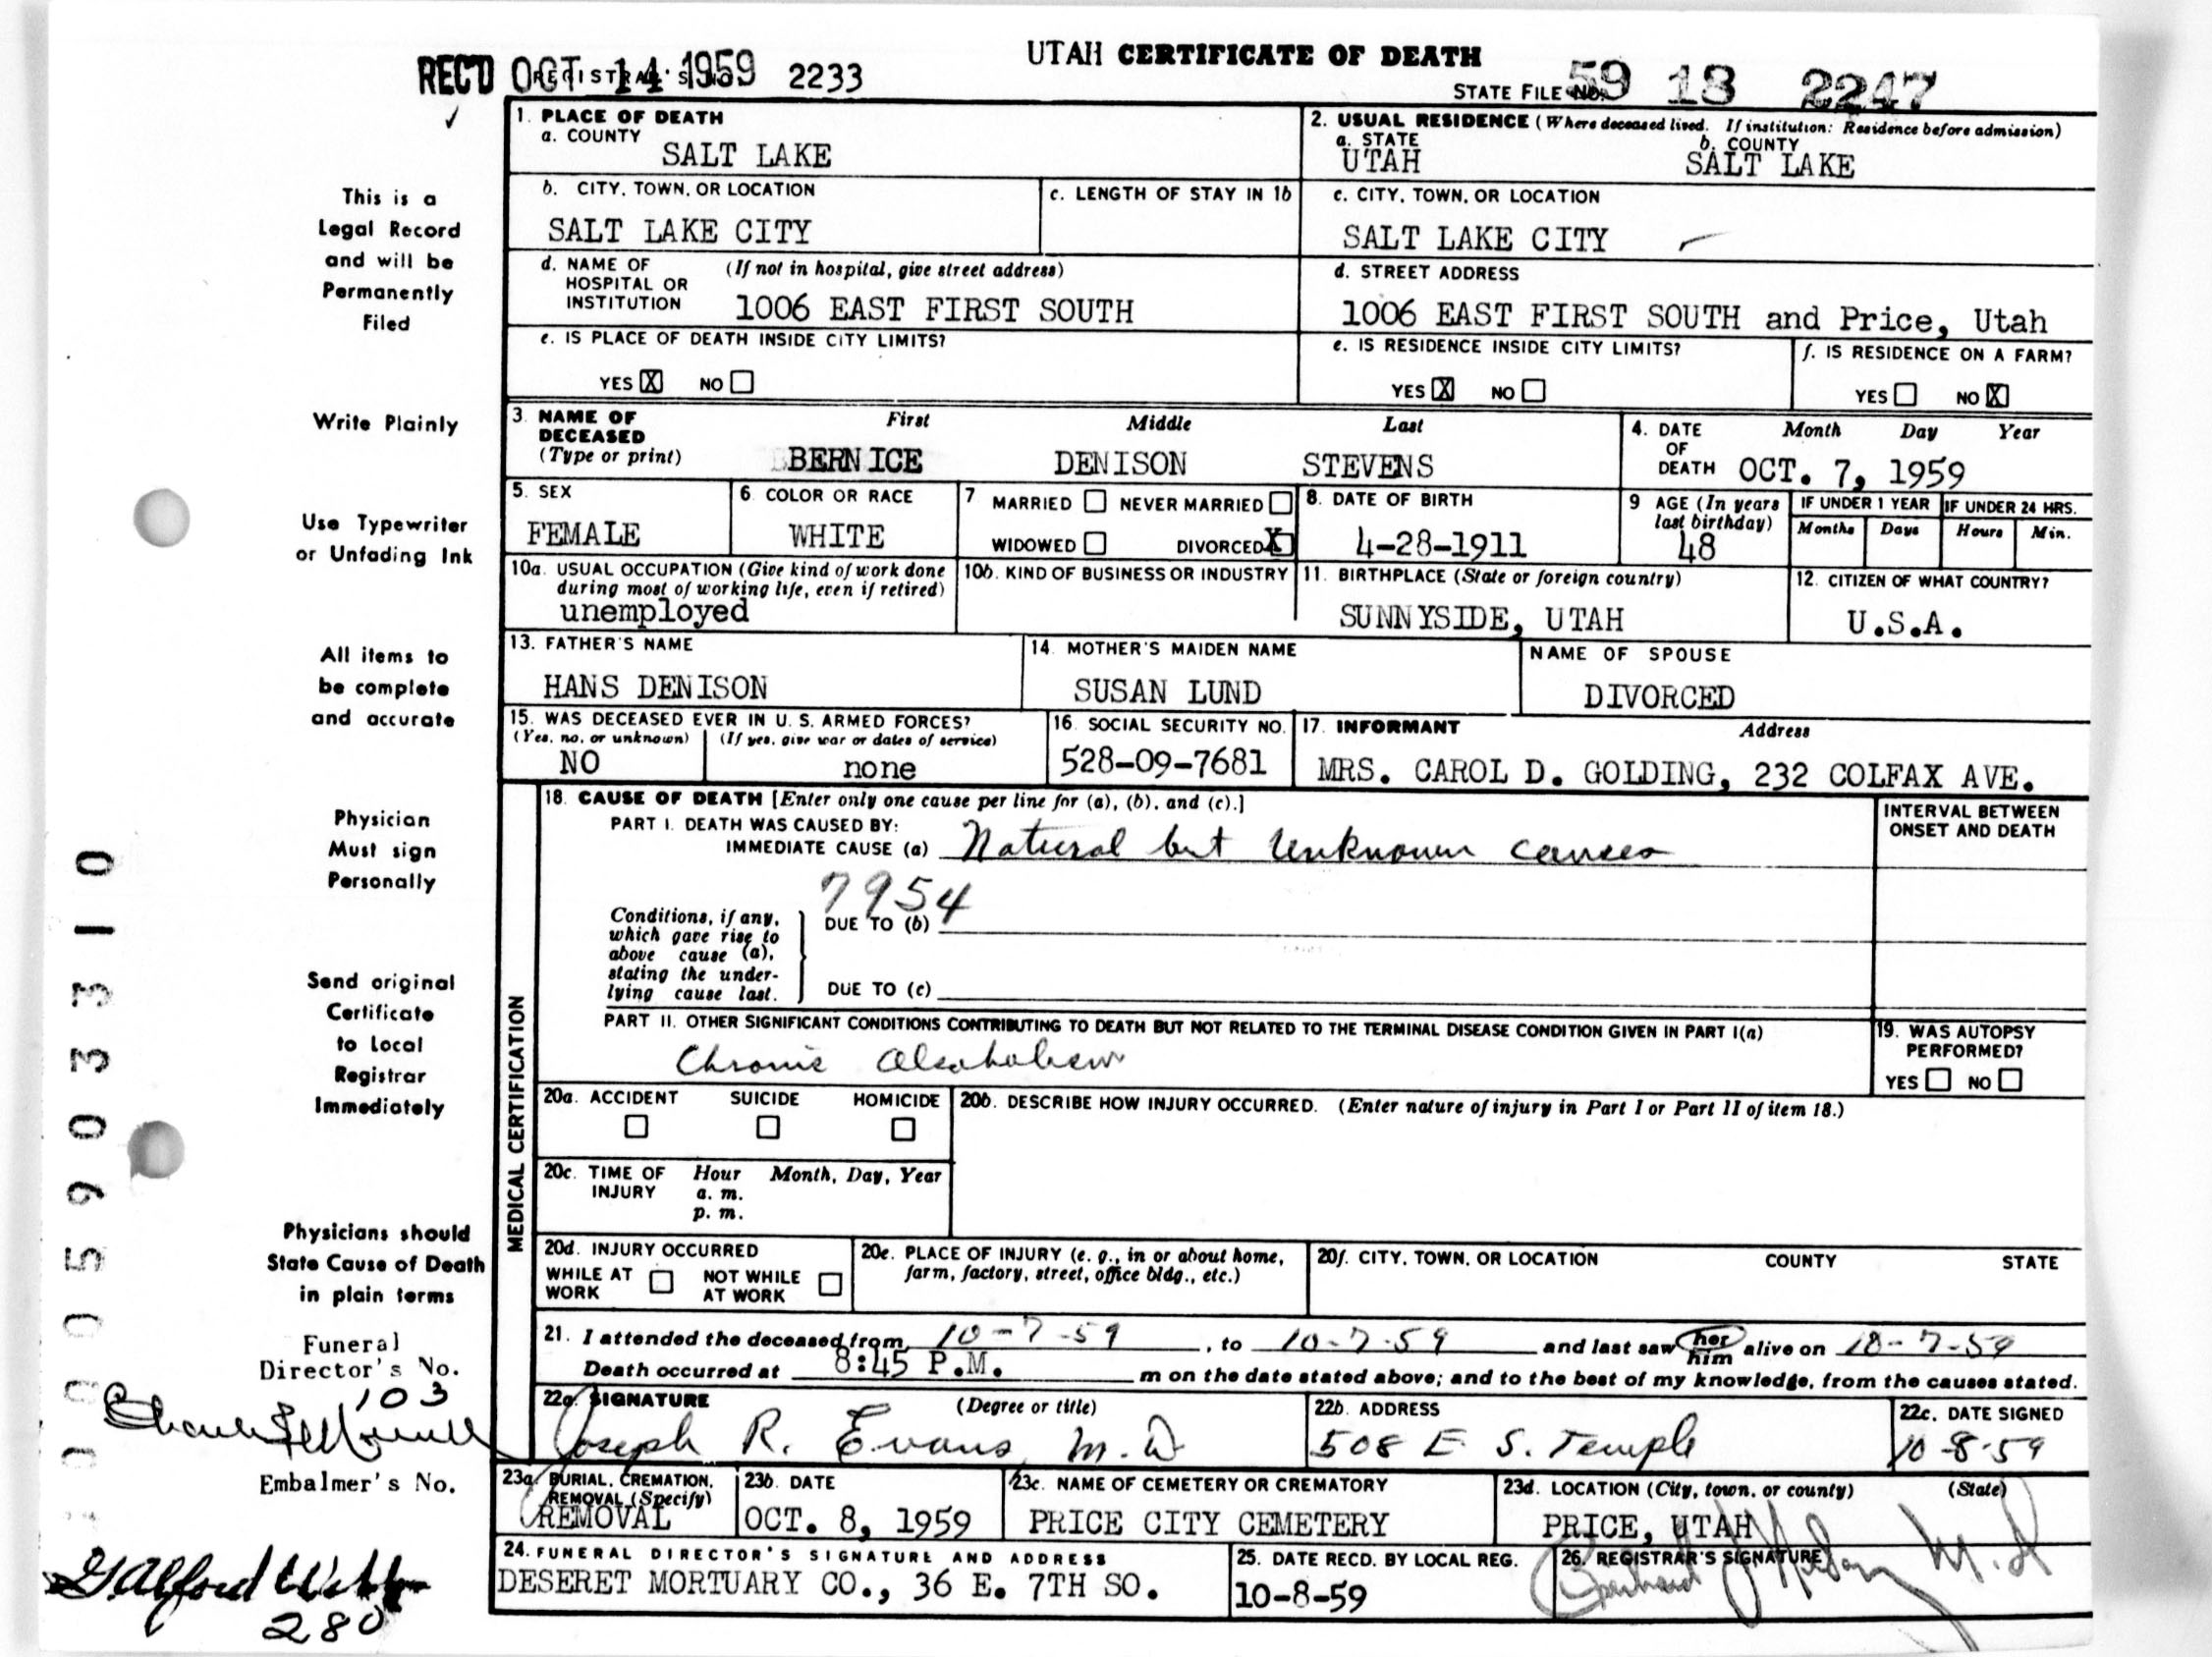 UTAH CERTIFICATE OF DEATH
REC'D OCT 14 1959 REGISTRAR'S NO. 2233
STATE FILE NO. 59 18 2247
1. PLACE OF DEATH
a. COUNTY
SALT LAKE
b. CITY, TOWN, OR LOCATION
SALT LAKE CITY
c. LENGTH OF STAY IN 1b
d. NAME OF HOSPITAL OR INSTITUTION (If not in hospital, give street address)
1006 EAST FIRST SOUTH
e. IS PLACE OF DEATH INSIDE CITY LIMITS?
YES X NO
2. USUAL RESIDENCE (Where deceased lived. If institution: Residence before admission)
a. STATE
UTAH
b. COUNTY
SALT LAKE
c. CITY, TOWN, OR LOCATION
SALT LAKE CITY
d. STREET ADDRESS
1006 EAST FIRST SOUTH and Price, Utah
e. IS RESIDENCE INSIDE CITY LIMITS?
YES X NO
f. IS RESIDENCE ON A FARM?
YES NO X
3. NAME OF DECEASED (Type or print)
First Middle Last
BERNICE DENISON STEVENS
4. DATE OF DEATH Month Day Year
OCT. 7, 1959
5. SEX
FEMALE
6. COLOR OR RACE
WHITE
7 MARRIED NEVER MARRIED
WIDOWED DIVORCED X
8. DATE OF BIRTH
4-28-1911
9 AGE (In years last birthday)
48
IF UNDER 1 YEAR
Months Days
IF UNDER 24 HRS.
Hours Min.
10a. USUAL OCCUPATION (Give kind of work done during most of working life, even if retired)
unemployed
10b. KIND OF BUSINESS OR INDUSTRY
11. BIRTHPLACE (State or foreign country)
SUNNYSIDE, UTAH
12. CITIZEN OF WHAT COUNTRY?
U.S.A.
13. FATHER'S NAME
HANS DENISON
14. MOTHER'S MAIDEN NAME
SUSAN LUND
NAME OF SPOUSE
DIVORCED
15. WAS DECEASED EVER IN U. S. ARMED FORCES?
(Yes, no, or unknown) (If yes, give war or dates of service)
NO none
16. SOCIAL SECURITY NO.
528-09-7681
17. INFORMANT Address
MRS. CAROL D. GOLDING, 232 COLFAX AVE.
MEDICAL CERTIFICATION
18. CAUSE OF DEATH [Enter only one cause per line for (a), (b), and (c).]
PART I. DEATH WAS CAUSED BY:
IMMEDIATE CAUSE (a) Natural but Unknown causes
7954
Conditions, if any, which gave rise to above cause (a), stating the underlying cause last.
DUE TO (b)
DUE TO (c)
INTERVAL BETWEEN ONSET AND DEATH
PART II. OTHER SIGNIFICANT CONDITIONS CONTRIBUTING TO DEATH BUT NOT RELATED TO THE TERMINAL DISEASE CONDITION GIVEN IN PART I(a)
Chronic Alcoholism
19. WAS AUTOPSY PERFORMED?
YES NO
20a. ACCIDENT SUICIDE HOMICIDE
20b. DESCRIBE HOW INJURY OCCURRED. (Enter nature of injury in Part I or Part II of item 18.)
20c. TIME OF INJURY Hour Month, Day, Year
a. m.
p. m.
20d. INJURY OCCURRED
WHILE AT WORK NOT WHILE AT WORK
20e. PLACE OF INJURY (e. g., in or about home, farm, factory, street, office bldg., etc.)
20f. CITY, TOWN, OR LOCATION COUNTY STATE
21. I attended the deceased from 10-7-59, to 10-7-59 and last saw her him alive on 10-7-59
Death occurred at 8:45 P.M. m on the date stated above; and to the best of my knowledge, from the causes stated.
22a. SIGNATURE (Degree or title)
Joseph R. Evans M.D
22b. ADDRESS
508 E S. Temple
22c. DATE SIGNED
10-8-59
23a. BURIAL, CREMATION, REMOVAL (Specify)
REMOVAL
23b. DATE
OCT. 8, 1959
23c. NAME OF CEMETERY OR CREMATORY
PRICE CITY CEMETERY
23d. LOCATION (City, town, or county) (State)
PRICE, UTAH
24. FUNERAL DIRECTOR'S SIGNATURE AND ADDRESS
DESERET MORTUARY CO., 36 E. 7TH SO.
25. DATE RECD. BY LOCAL REG.
10-8-59
26. REGISTRAR'S SIGNATURE
M.D
This is a
Legal Record
and will be
Permanently
Filed
Write Plainly
Use Typewriter
or Unfading Ink
All items to
be complete
and accurate
Physician
Must sign
Personally
Send original
Certificate
to Local
Registrar
Immediately
Physicians should
State Cause of Death
in plain terms
Funeral
Director's No.
103
Embalmer's No.
Galford Webb
280